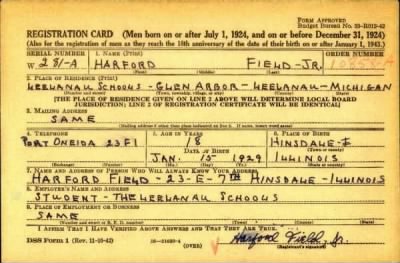 FORM APPROVED
Budget Bureau No. 33-R012-42
REGISTRATION CARD (Men born on or after July 1, 1924, and on or before December 31, 1924)
(Also for the registration of men as they reach the 18th anniversary of the date of their birth on or after January 1, 1943.)
SERIAL NUMBER 1. NAME (Print) ORDER NUMBER
W 281-A HARFORD FIELD-JR.
(First) (Middle) (Last)
2. PLACE OF RESIDENCE (Print)
LEELANAU SCHOOLS - GLEN ARBOR - LEELANAU - MICHIGAN
(Number and street) (Town, township, village, or city) (County) (State)
[THE PLACE OF RESIDENCE GIVEN ON LINE 2 ABOVE WILL DETERMINE LOCAL BOARD
JURISDICTION; LINE 2 OF REGISTRATION CERTIFICATE WILL BE IDENTICAL]
3. MAILING ADDRESS
SAME
4. TELEPHONE 5. AGE IN YEARS 6. PLACE OF BIRTH
PORT ONEIDA 23F1 18 HINSDALE-I
DATE OF BIRTH (Town or county)
JAN. 15 ILLINOIS
(Exchange) (Number) (Mo.) (Day) (Yr.) (State or country)
7. NAME AND ADDRESS OF PERSON WHO WILL ALWAYS KNOW YOUR ADDRESS
HARFORD FIELD - 23-E-7TH HINSDALE - ILLINOIS
8. EMPLOYER'S NAME AND ADDRESS
STUDENT - THE LEELANAU SCHOOLS
9. PLACE OF EMPLOYMENT OR BUSINESS
SAME
(Number and street or R. F. D. number) (Town) (County) (State)
I AFFIRM THAT I HAVE VERIFIED ABOVE ANSWERS AND THAT THEY ARE TRUE.
DSS Form 1 (Rev. 11-16-42) (OVER) Harford Field, Jr.
(Registrant's signature)